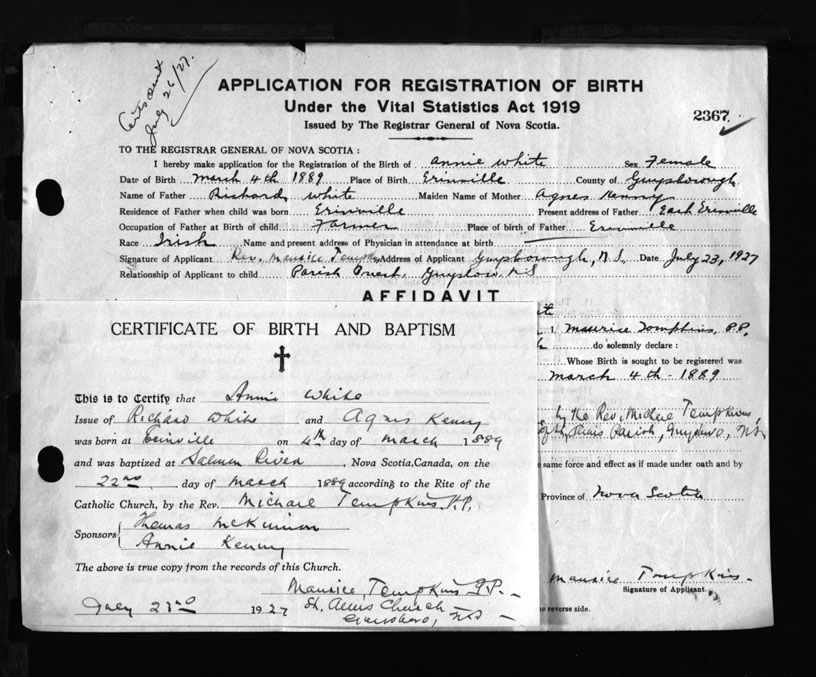 Cert. sent
July 26/27.
APPLICATION FOR REGISTRATION OF BIRTH
Under the Vital Statistics Act 1919
Issued by The Registrar General of Nova Scotia.
2367
TO THE REGISTRAR GENERAL OF NOVA SCOTIA :
I hereby make application for the Registration of the Birth of Annie White Sex Female
Date of Birth March 4th 1889 Place of Birth Erinville County of Guysborough
Name of Father Richard White Maiden Name of Mother Agnes Kenny
Residence of Father when child was born Erinville Present address of Father East Erinville
Occupation of Father at Birth of child Farmer Place of birth of Father Erinville
Race Irish Name and present address of Physician in attendance at birth
Signature of Applicant Rev. Maurice Tompkins Address of Applicant Guysborough, N.S. Date July 23, 1927
Relationship of Applicant to child Parish Priest, N.S
AFFIDAVIT
I, Maurice Tompkins, P.P.
do solemnly declare :
Whose Birth is sought to be registered was
March 4th - 1889
by the Rev. Michael Tompkins,
Parish, Guysboro, N.S.
same force and effect as if made under oath and by
Province of Nova Scotia
Maurice Tompkins
Signature of Applicant.
reverse side.
CERTIFICATE OF BIRTH AND BAPTISM
This is to Certify that Annie White
Issue of Richard White and Agnes Kenny
was born at Erinville on 4th day of March 1889
and was baptized at Salmon River, Nova Scotia, Canada, on the
22nd day of March 1889 according to the Rite of the
Catholic Church, by the Rev. Michael Tompkins P.P.
Sponsors { Thomas McKinnon
Annie Kenny
The above is true copy from the records of this Church.
Maurice Tompkins P.P.
July 23rd 1927 St. Church
Guysboro, N.S.